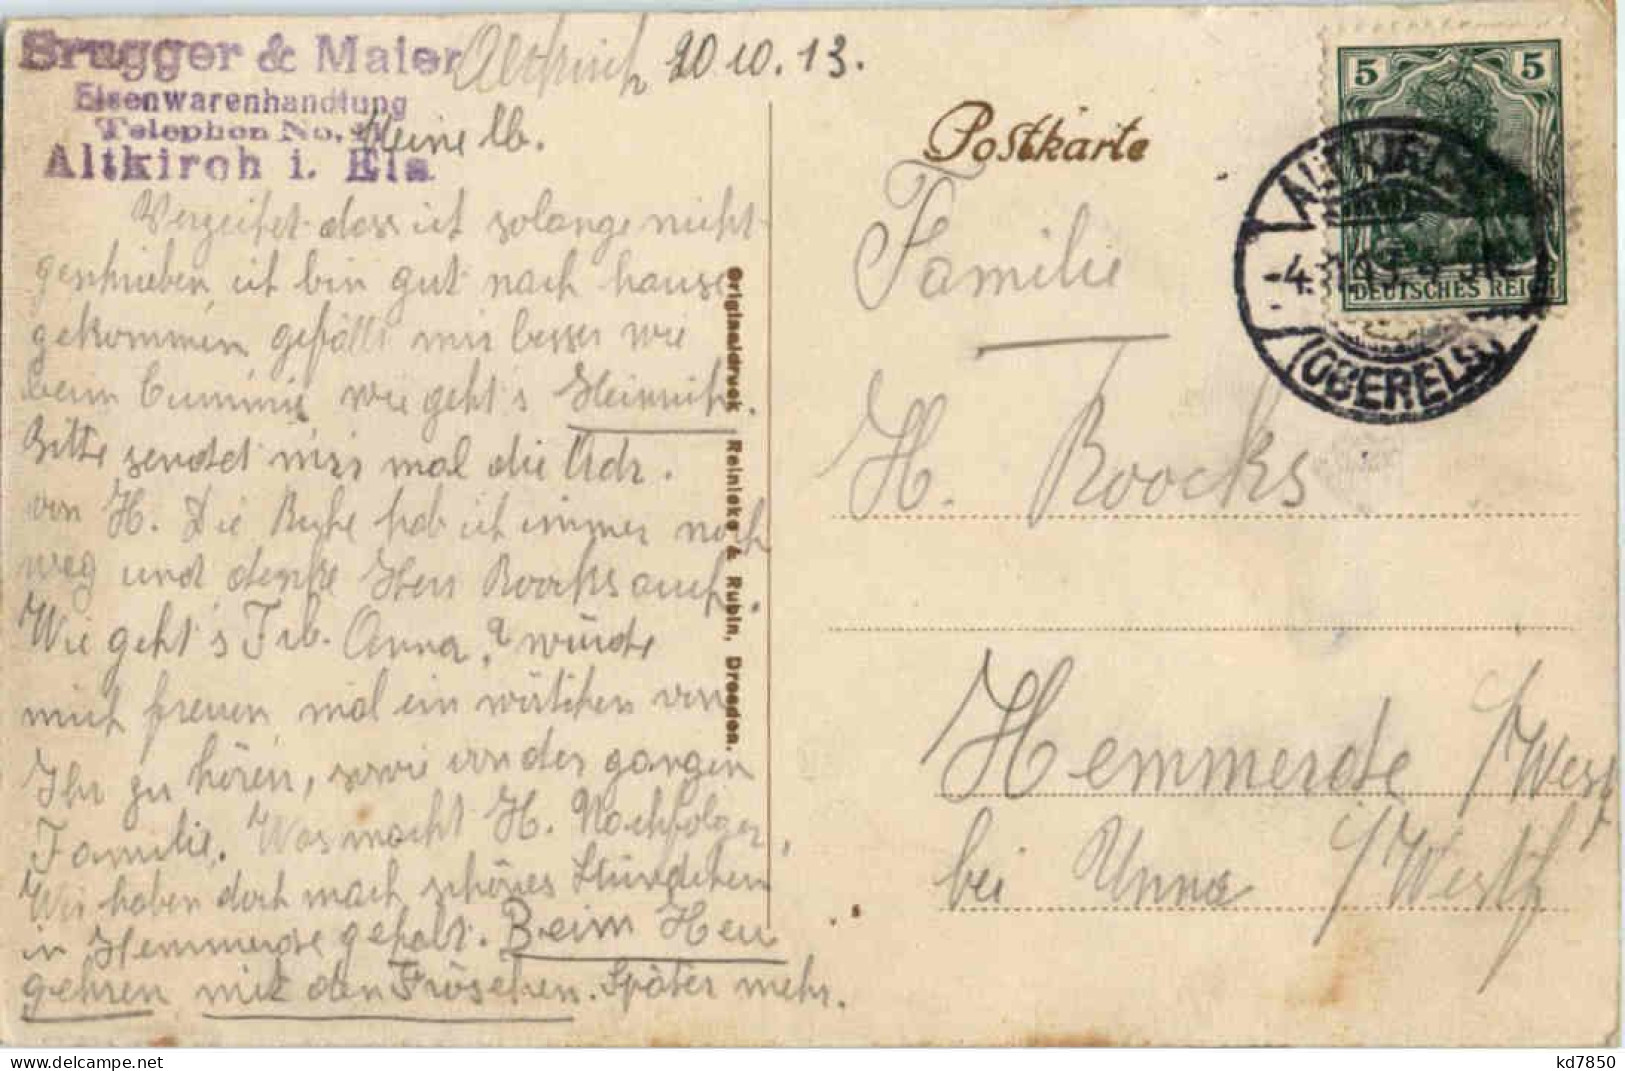 Brugger & Maier
Eisenwarenhandlung
Telephon No.
Altkirch i. Els.
Altkirch 20 10. 13.
Meine lb.
Verzeihet dass ich solange nicht
geschrieben, ich bin gut nach hause
gekommen gefällt mir besser wie
beim wie geht's Heinrich.
Bitte sendet mir mal die Adr.
von H. Die hab ich immer noch
weg und denke Herr Roocks auch.
Wie geht's Frl. Anna, ? würde
mich freuen mal ein wörtchen von
Ihr zu hören, sowie von der ganzen
Familie. Was macht H. Nachfolger,
Wir haben doch manch schönes Stündchen
in Hemmerde gehabt. Beim Heu
gehren mit den Fröschen. Später mehr.
Originaldruck Reinicke & Rubin, Dresden.
Postkarte
5 5
DEUTSCHES REICH
ALTKIRCH
(OBERELS)
Familie
H. Roocks
Hemmerde i/West
bei Unna i/Westf
kd7850